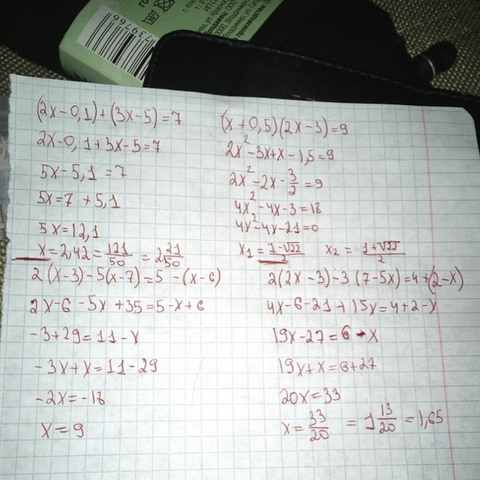 (2x-0,1)+(3x-5)=7
2x-0,1+3x-5=7
5x-5,1=7
5x=7+5,1
5x=12,1
x=2,42=121/50=2 21/50
(x+0,5)(2x-3)=9
2x²-3x+x-1,5=9
2x²-2x-3/2=9
4x²-4x-3=18
4x²-4x-21=0
x₁=1-√22/2 x₂=1+√22/2
2(x-3)-5(x-7)=5-(x-6)
2x-6-5x+35=5-x+6
-3+29=11-x
-3x+x=11-29
-2x=-18
x=9
2(2x-3)-3(7-5x)=4+(2-x)
4x-6-21+15x=4+2-x
19x-27=6-x
19x+x=6+27
20x=33
x=33/20=1 13/20=1,65